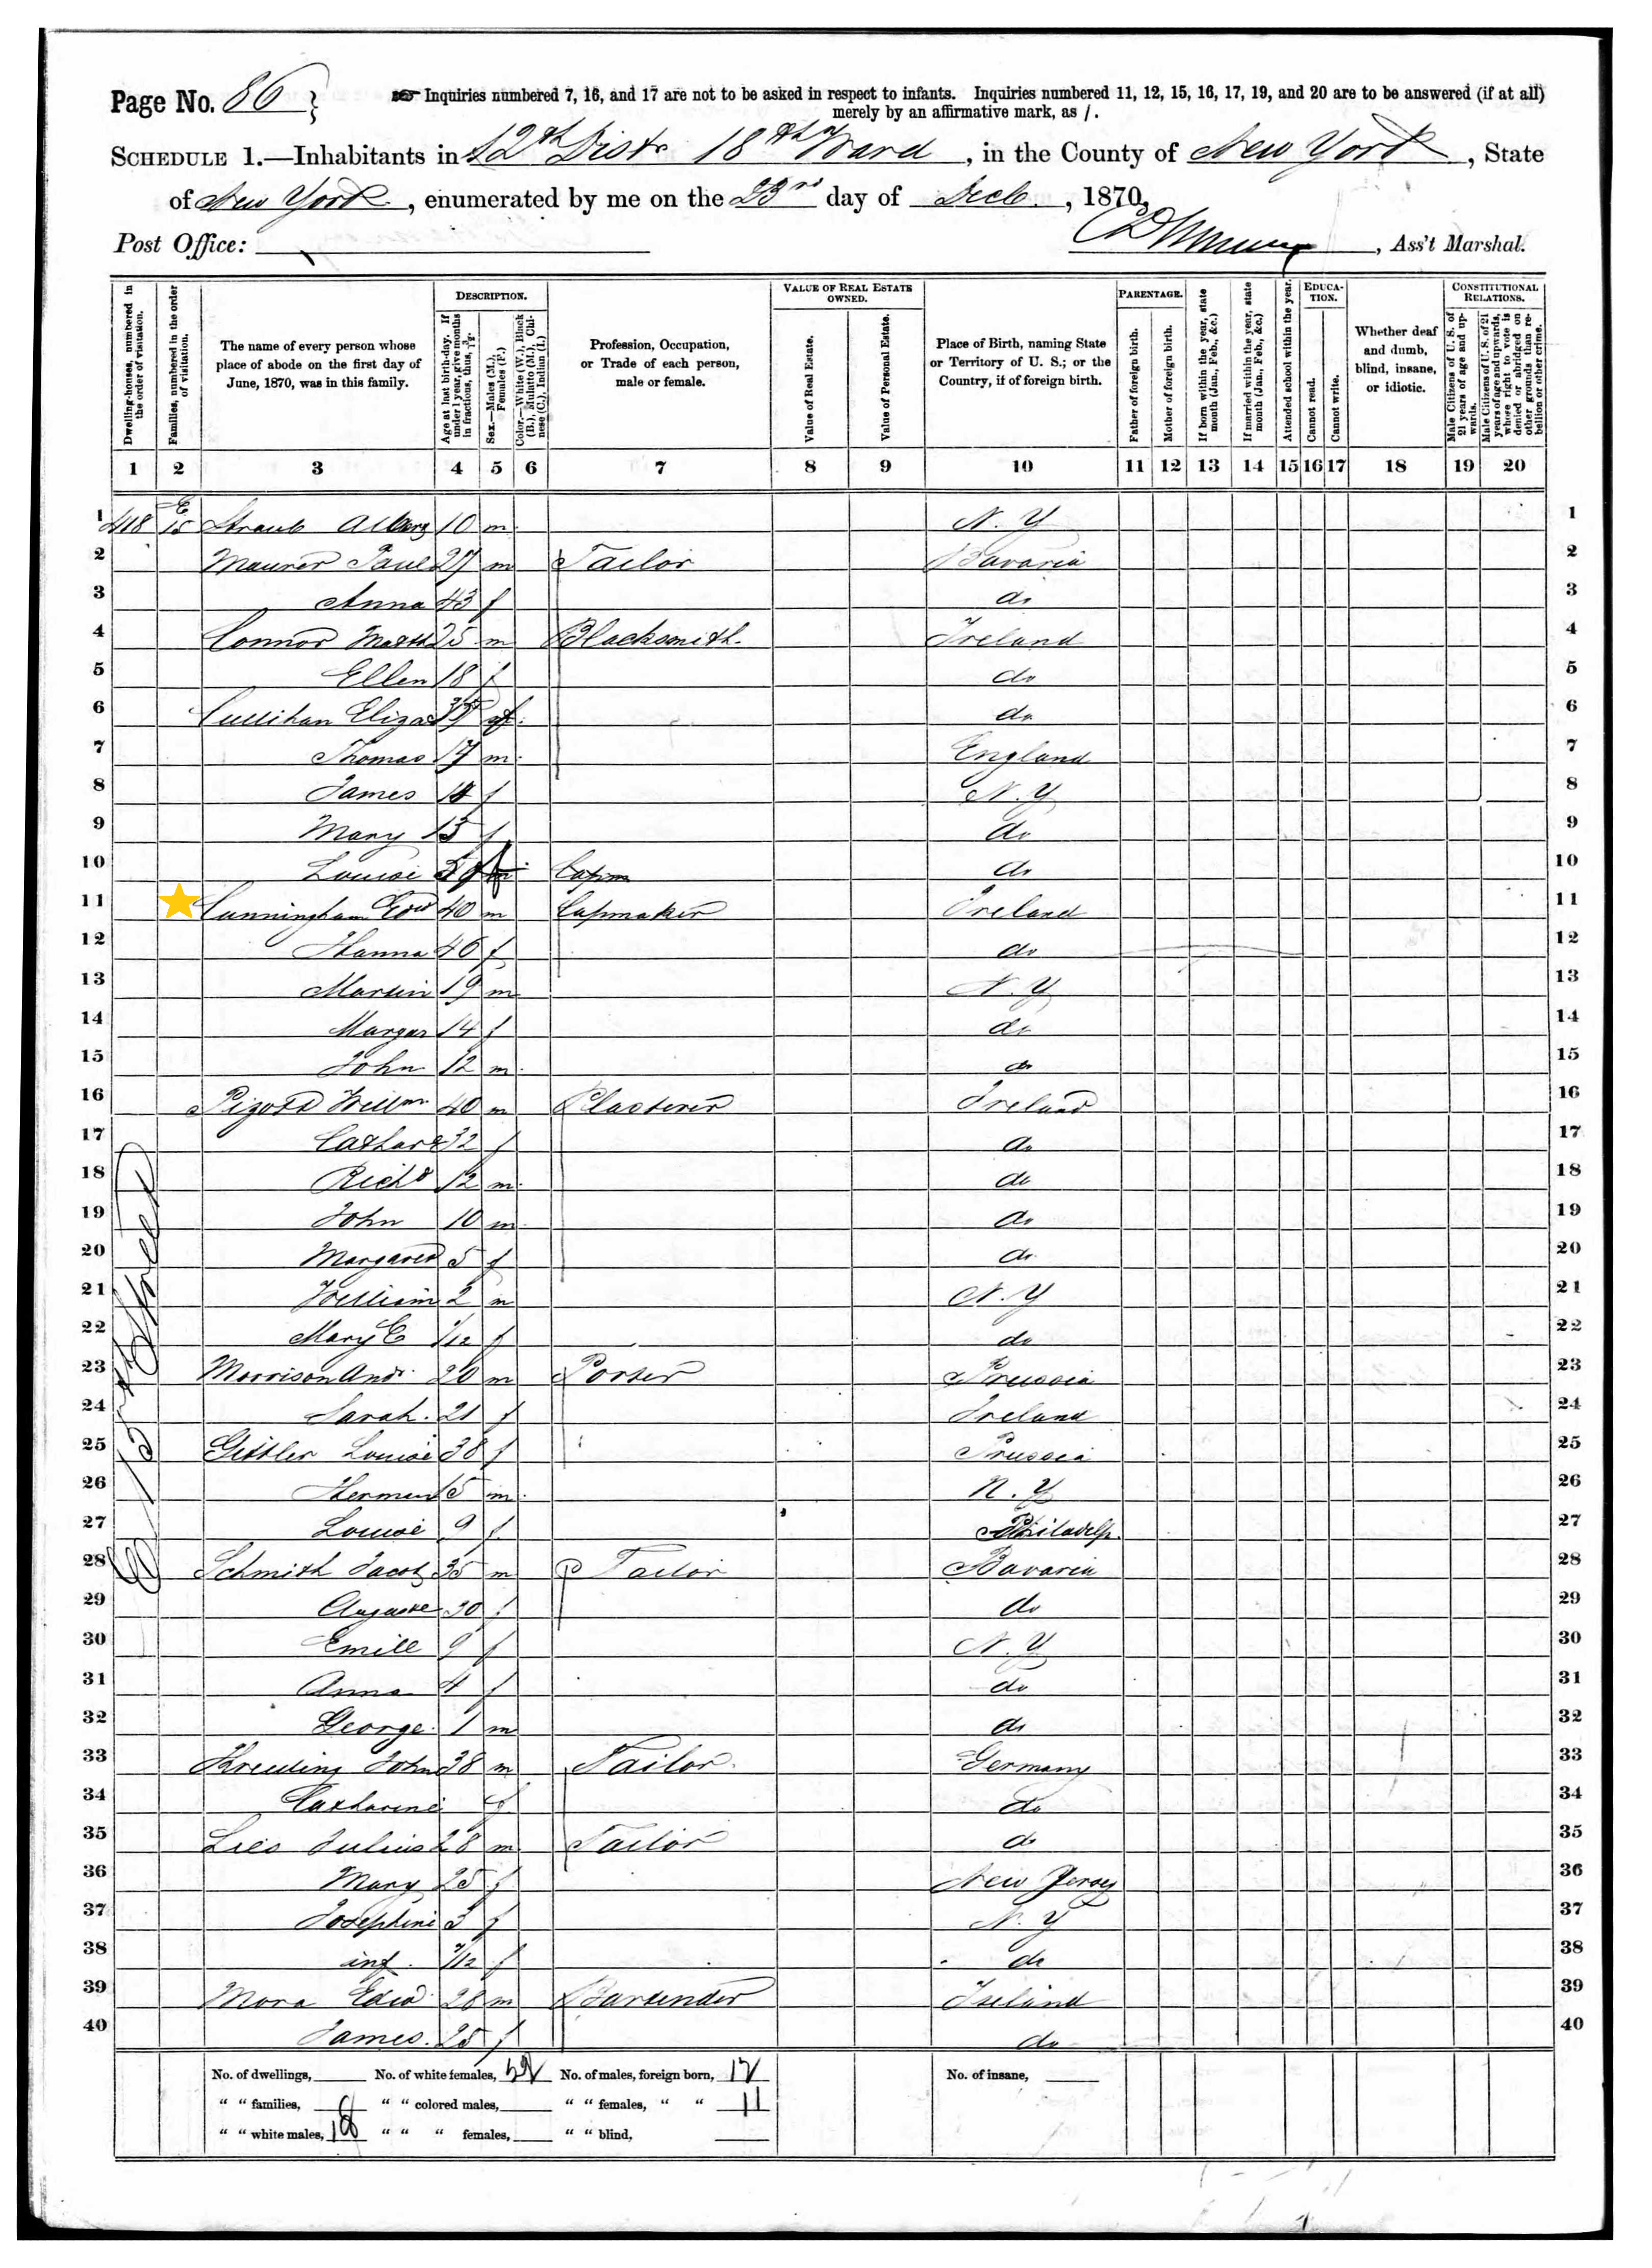 Page No. 86
Inquiries numbered 7, 16, and 17 are not to be asked in respect to infants. Inquiries numbered 11, 12, 15, 16, 17, 19, and 20 are to be answered (if at all)
merely by an affirmative mark, as /.
SCHEDULE 1.—Inhabitants in 12th Distr 18th Ward, in the County of New York, State
of New York, enumerated by me on the 23rd day of Decb, 1870.
Post Office:
, Ass't Marshal.
Dwelling-houses, numbered in the order of visitation.
Families, numbered in the order of visitation.
The name of every person whose place of abode on the first day of June, 1870, was in this family.
DESCRIPTION.
Age at last birth-day. If under 1 year, give months in fractions, thus, 3/12.
Sex.—Males (M.), Females (F.)
Color.—White (W.), Black (B.), Mulatto (M.), Chinese (C.), Indian (I.)
Profession, Occupation, or Trade of each person, male or female.
VALUE OF REAL ESTATE OWNED.
Value of Real Estate.
Value of Personal Estate.
Place of Birth, naming State or Territory of U. S.; or the Country, if of foreign birth.
PARENTAGE.
Father of foreign birth.
Mother of foreign birth.
If born within the year, state month (Jan., Feb., &c.)
If married within the year, state month (Jan., Feb., &c.)
Attended school within the year.
EDUCATION.
Cannot read.
Cannot write.
Whether deaf and dumb, blind, insane, or idiotic.
CONSTITUTIONAL RELATIONS.
Male Citizens of U. S. of 21 years of age and upwards.
Male Citizens of U. S. of 21 years of age and upwards, whose right to vote is denied or abridged on other grounds than rebellion or other crime.
1 2 3 4 5 6 7 8 9 10 11 12 13 14 15 16 17 18 19 20
1 418 15 Straub 10 m N. Y 1
2 Maurer Paul 27 m Tailor Bavaria 2
3 Anna 43 f do 3
4 Connor Matth 25 m Blacksmith Ireland 4
5 Ellen 18 f do 5
6 Cullihan Eliza f do 6
7 Thomas 17 m England 7
8 James f N. Y 8
9 Mary 13 f do 9
10 Louise do 10
11 Cunningham Edwd 40 m Capmaker Ireland 11
12 Hanna 46 f do 12
13 Martin 19 m N. Y 13
14 Margar 14 f do 14
15 John 12 m do 15
16 Pigott Willm 40 m Plasterer Ireland 16
17 Cathar 32 f do 17
18 Richd 12 m do 18
19 John 10 m do 19
20 Margaret 5 f do 20
21 William 2 m N. Y 21
22 Mary C 1/12 f do 22
23 Morrison Andr. 20 m Porter Prussia 23
24 Sarah 21 f Ireland 24
25 Gittler Louise 38 f Prussia 25
26 Herman 15 m N. Y 26
27 Louise 9 f Philadelp. 27
28 Schmith Jacob 35 m Tailor Bavaria 28
29 Auguste 30 f do 29
30 Emill 9 f N. Y 30
31 Anna 4 f do 31
32 George 1 m do 32
33 John 38 m Tailor Germany 33
34 Catharine f do 34
35 Lies Julius 28 m Tailor do 35
36 Mary 25 f New Jersey 36
37 Josephine 3 f N. Y 37
38 inf. f do 38
39 Mora Edwd 28 m Bartender Ireland 39
40 James 25 f do 40
No. of dwellings, No. of white females, No. of males, foreign born, No. of insane,
" " families, " " colored males, " " females, " " 11
" " white males, 18 " " " females, " " blind,